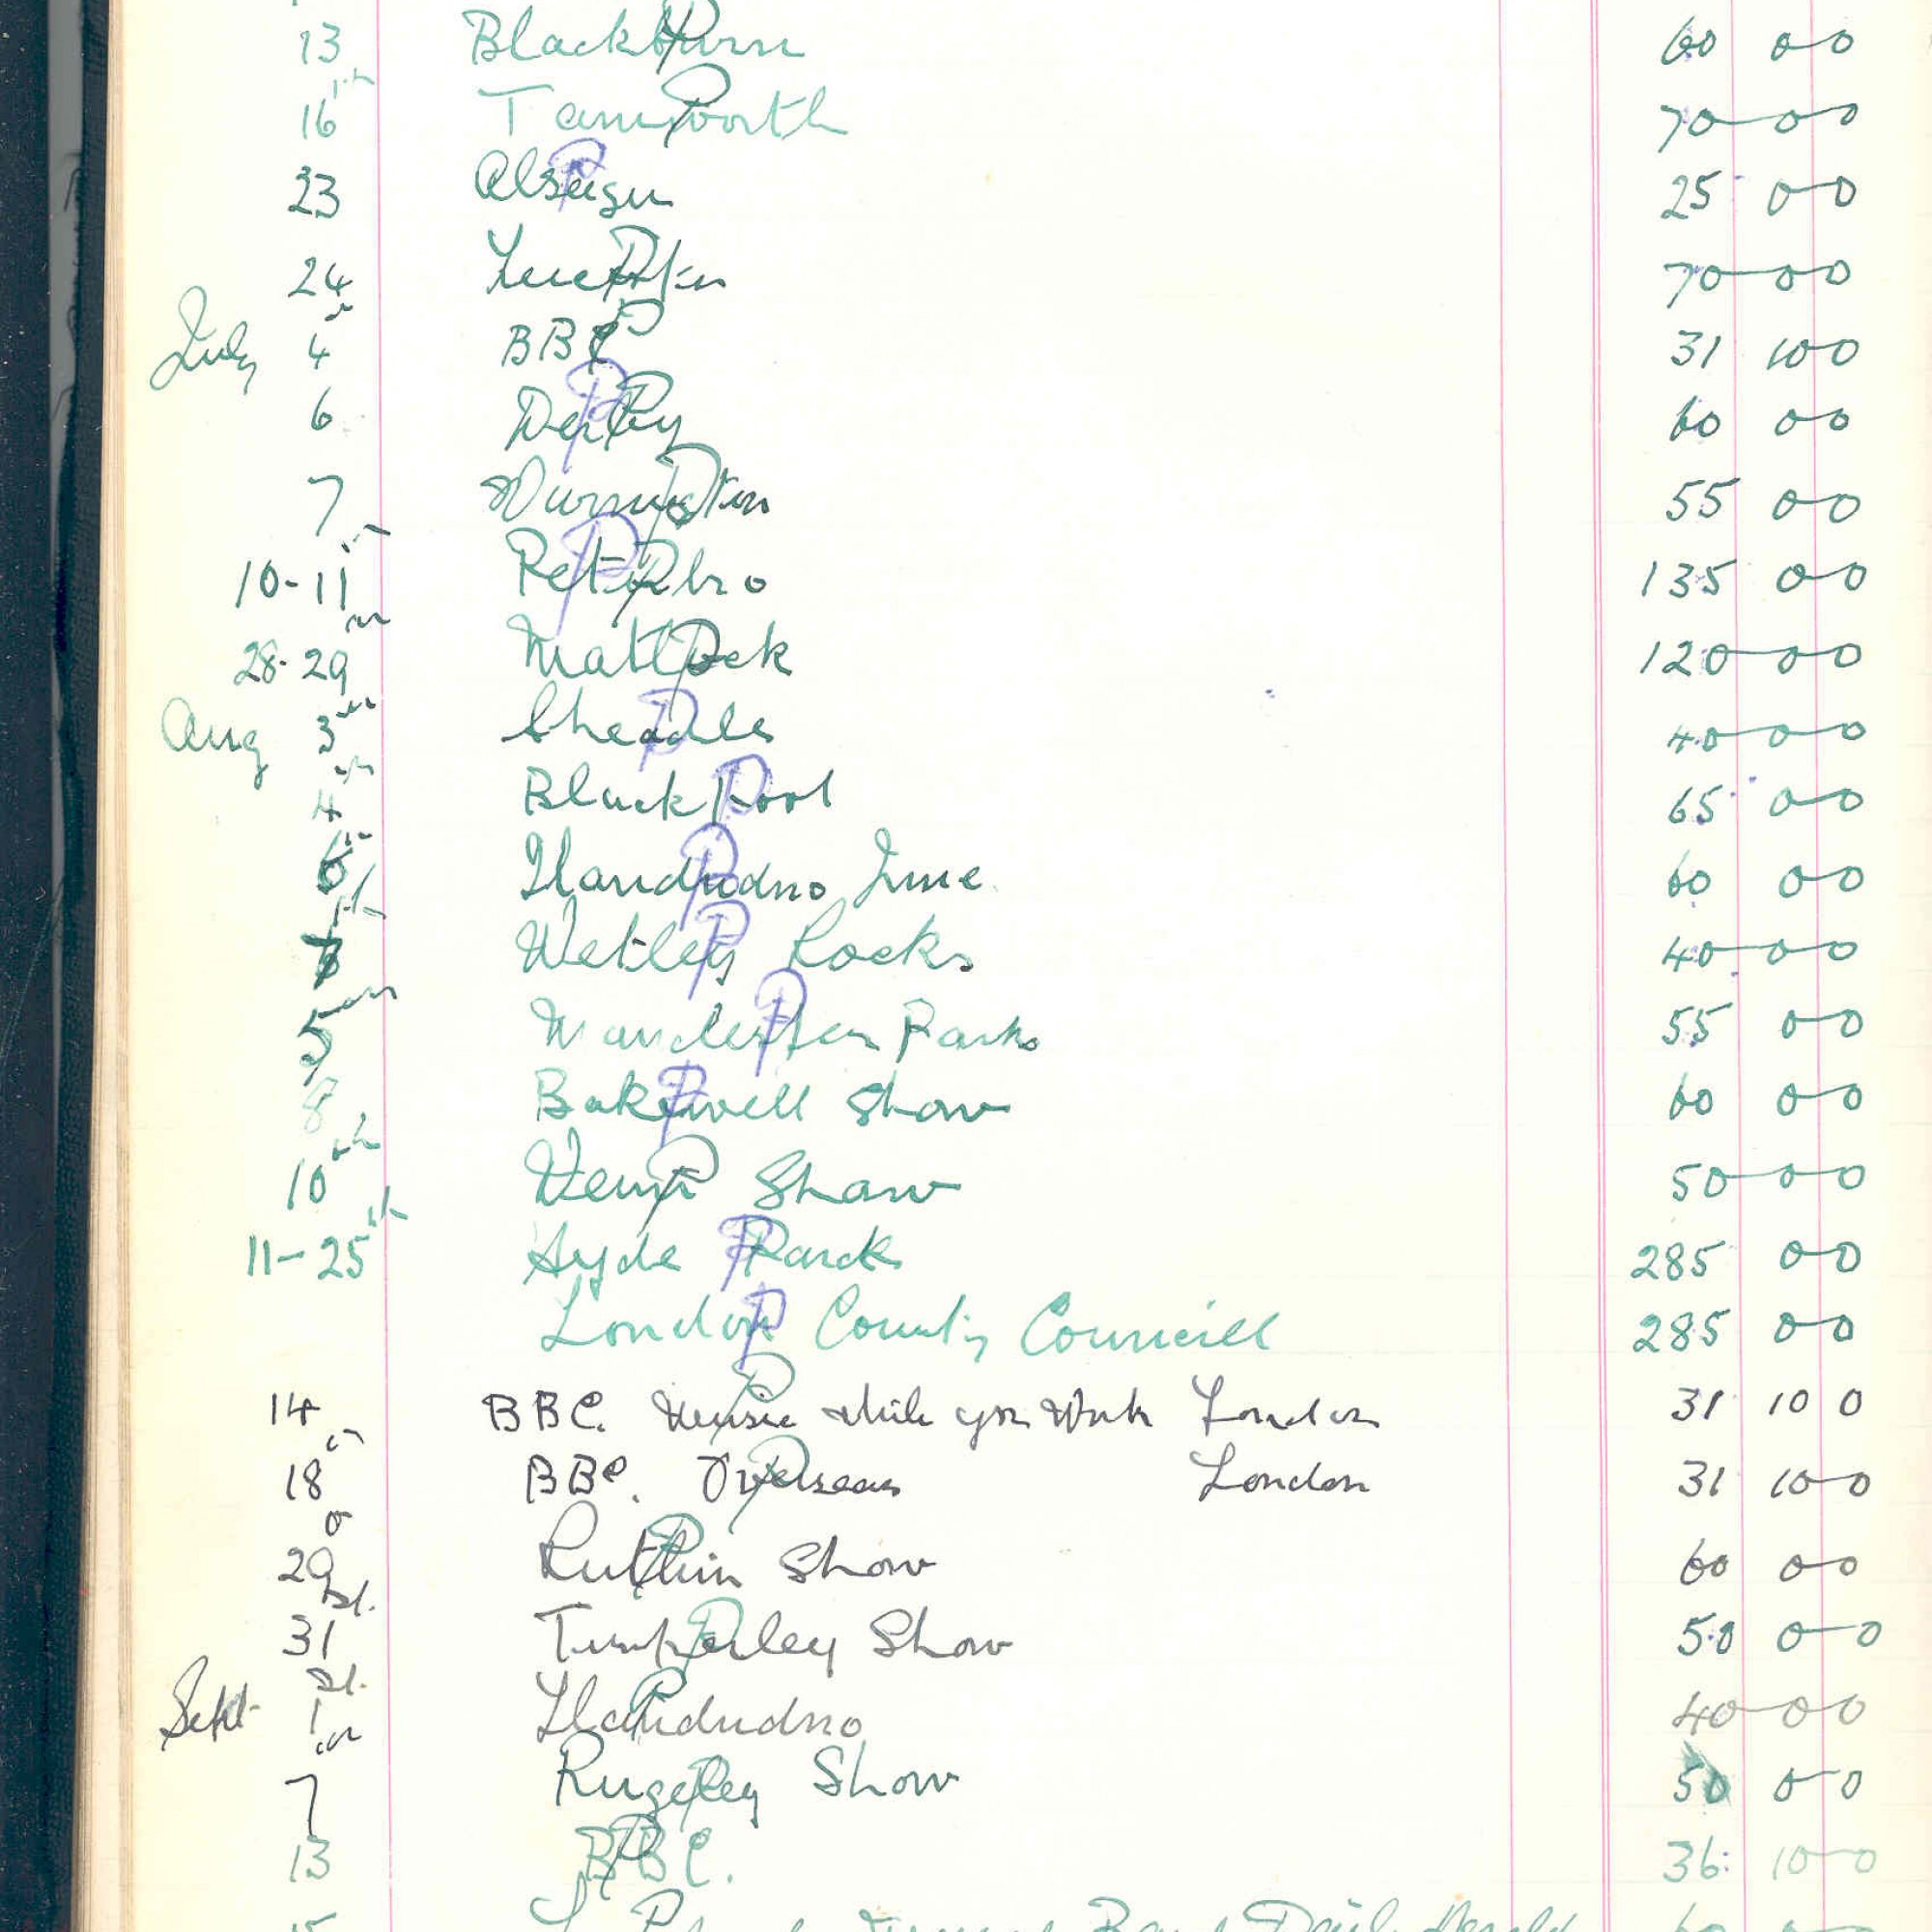 13 Blackburn 60 0 0
16th Tamworth 70 0 0
23 Alsager 25 0 0
24 70 0 0
July 4 BBC 31 10 0
6 Derby 60 0 0
7 55 0 0
10-11th Peterbro 135 0 0
28-29 Matlock 120 0 0
Aug 3 Cheadle 40 0 0
4th Blackpool 65 0 0
6th Llandudno Junc. 60 0 0
7th Wetley Rocks 40 0 0
5th Park 55 0 0
8 Bakewell Show 60 0 0
10th Show 50 0 0
11-25th Hyde Park 285 0 0
London County Councill 285 0 0
14 BBC. Music while you Work London 31 10 0
18th BBC. Overseas London 31 10 0
29 Ruthin Show 60 0 0
31st. Timperley Show 50 0 0
Sept 1st. Llandudno 40 0 0
7th Rugeley Show 50 0 0
13 BBC. 36 10 0
15 Band Daily Herald 60